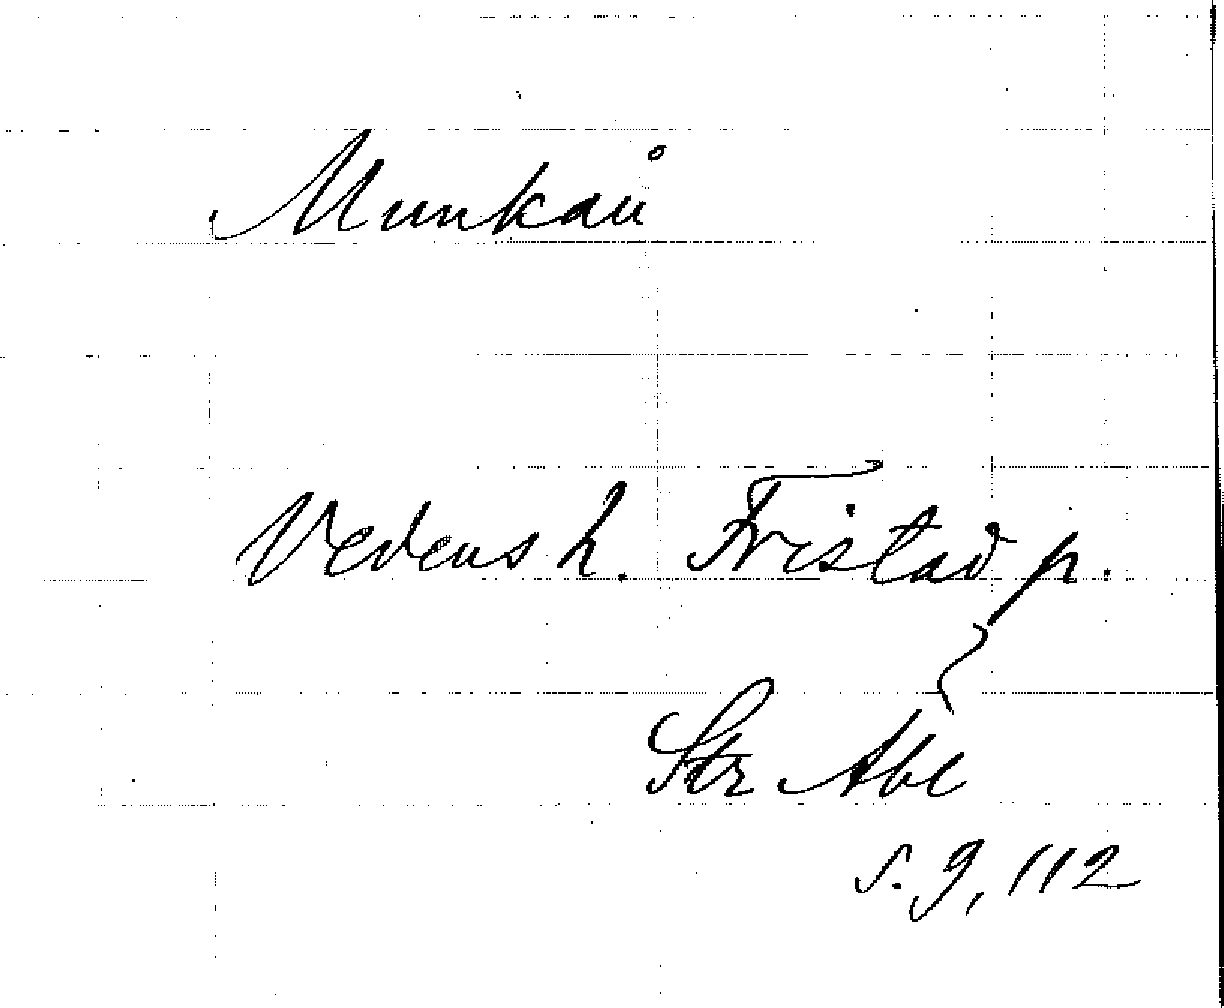 Munkån
Vedens h. Fristad p.
Str Abl
s. 9, 112